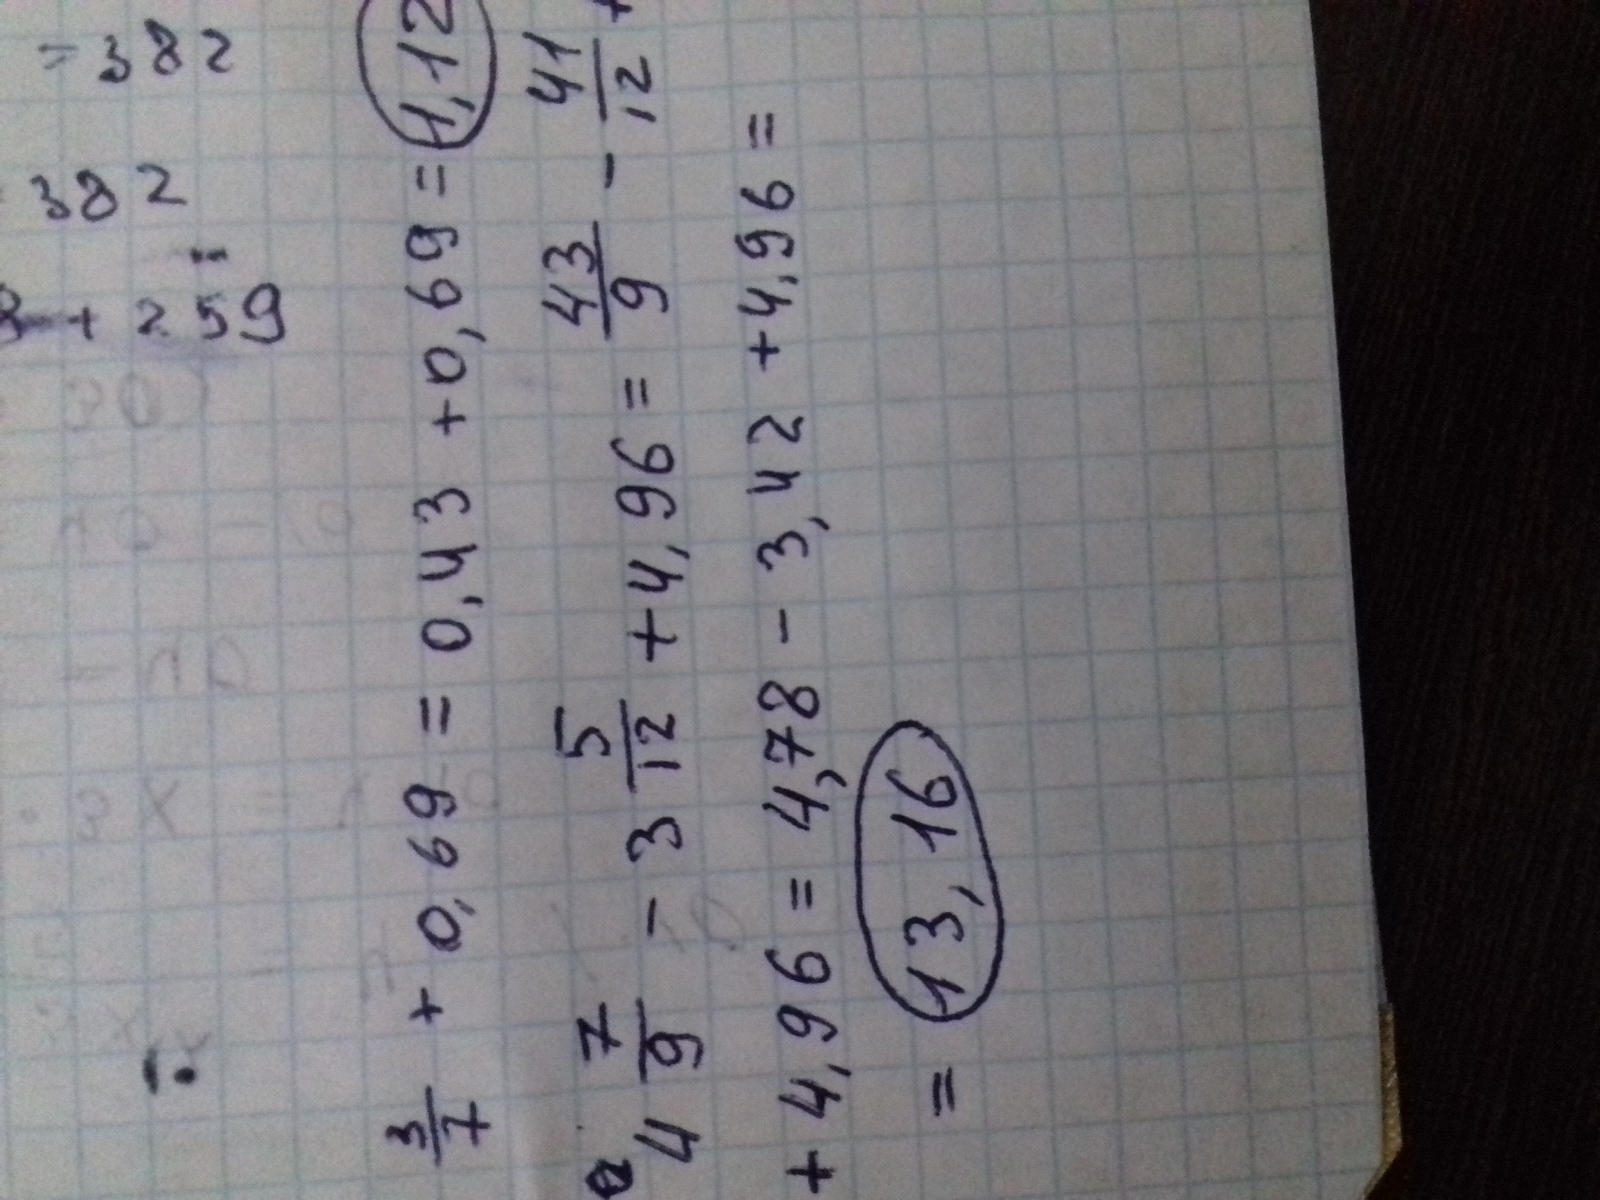 = 382
382
=
+ 259
3/7 + 0,69 = 0,43 + 0,69 = 1,12
4 7/9 - 3 5/12 + 4,96 = 43/9 - 41/12 +
+ 4,96 = 4,78 - 3,42 + 4,96 =
= 13,16